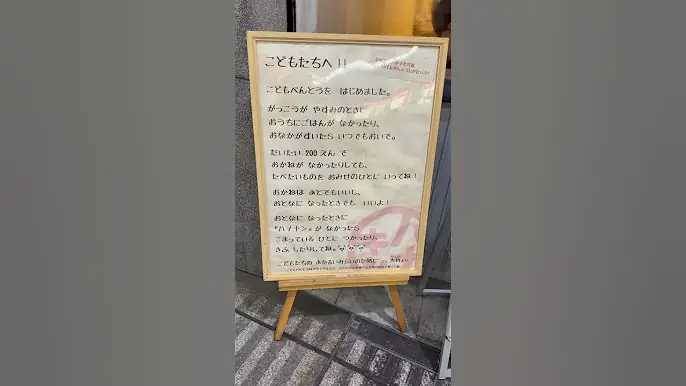 こどもたちへ !!
こどもべんとうを はじめました。
がっこうが やすみのときに
おうちにごはんが なかったり、
おなかがすいたら いつでもおいで。
だいたい 200えん で
おかねが なかったりしても、
たべたいものを おみせのひとに いってね!
おかねは あとでもいいし、
おとなに なったときでも いいよ!
おとなに なったときに
『ハナキン』が なかったら
こまっている ひとに つかったり、
きふ したりしてね。
こどもたちの あかるいみらいのために